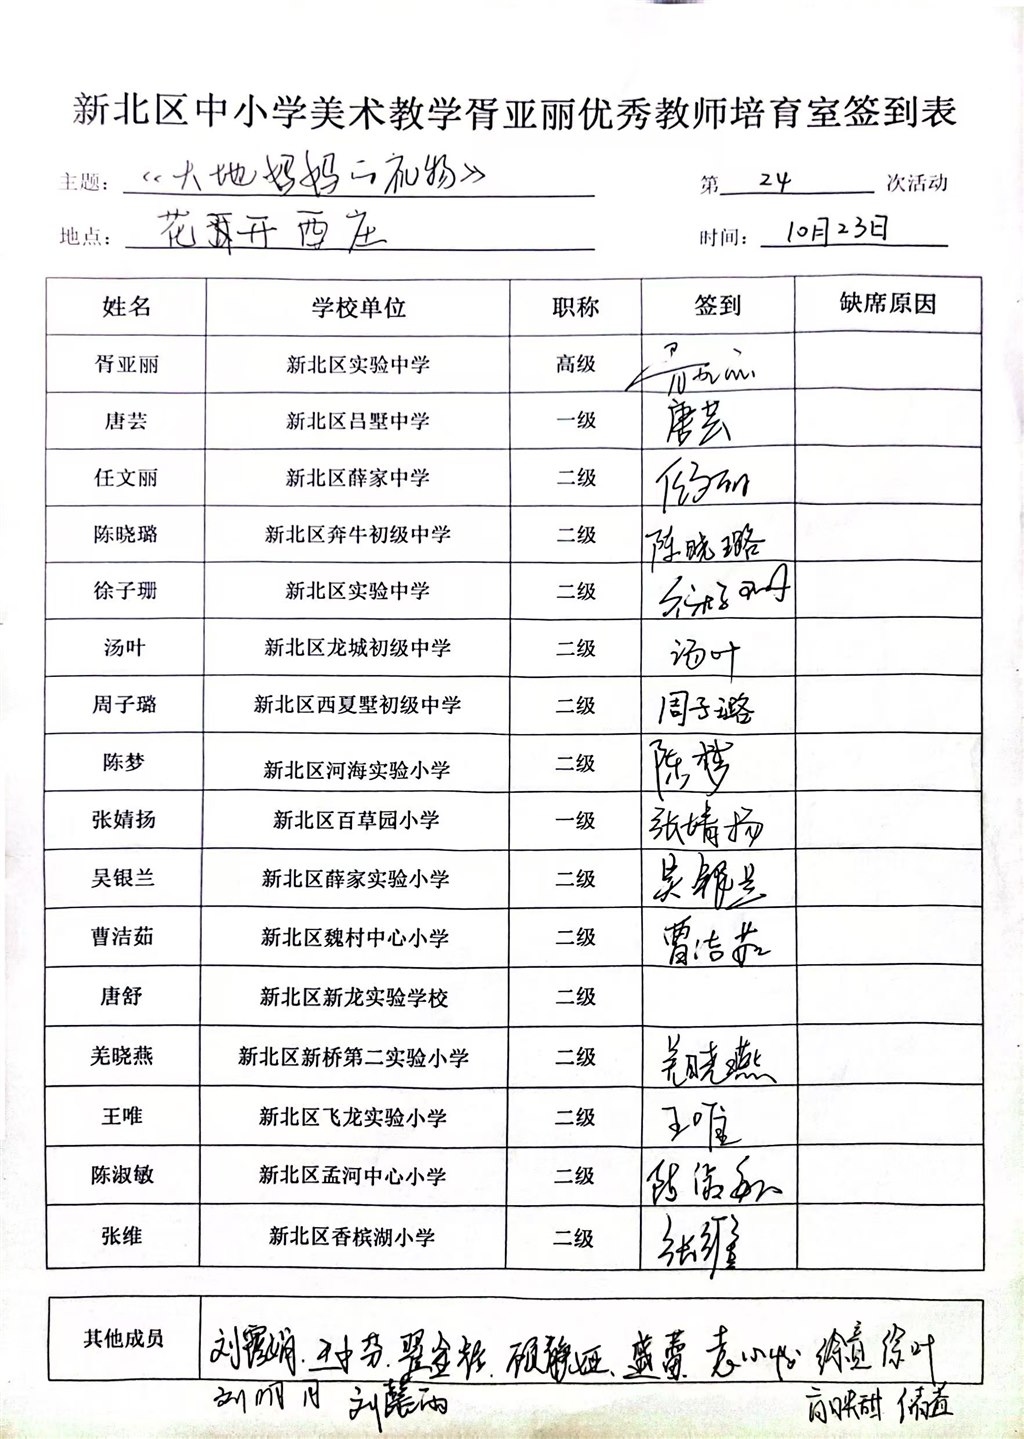 新北区中小学美术教学胥亚丽优秀教师培育室签到表
主题：《大地妈妈的礼物》 第 24 次活动
地点：花开西庄 时间：10月23日
姓名 学校单位 职称 签到 缺席原因
胥亚丽 新北区实验中学 高级 胥亚丽
唐芸 新北区吕墅中学 一级 唐芸
任文丽 新北区薛家中学 二级 任文丽
陈晓璐 新北区奔牛初级中学 二级 陈晓璐
徐子珊 新北区实验中学 二级 徐子珊
汤叶 新北区龙城初级中学 二级 汤叶
周子璐 新北区西夏墅初级中学 二级 周子璐
陈梦 新北区河海实验小学 二级 陈梦
张婧扬 新北区百草园小学 一级 张婧扬
吴银兰 新北区薛家实验小学 二级 吴银兰
曹洁茹 新北区魏村中心小学 二级 曹洁茹
唐舒 新北区新龙实验学校 二级
羌晓燕 新北区新桥第二实验小学 二级 羌晓燕
王唯 新北区飞龙实验小学 二级 王唯
陈淑敏 新北区孟河中心小学 二级 陈淑敏
张维 新北区香槟湖小学 二级 张维
其他成员 刘霞娟. 盛蕾. 徐叶
刘明月